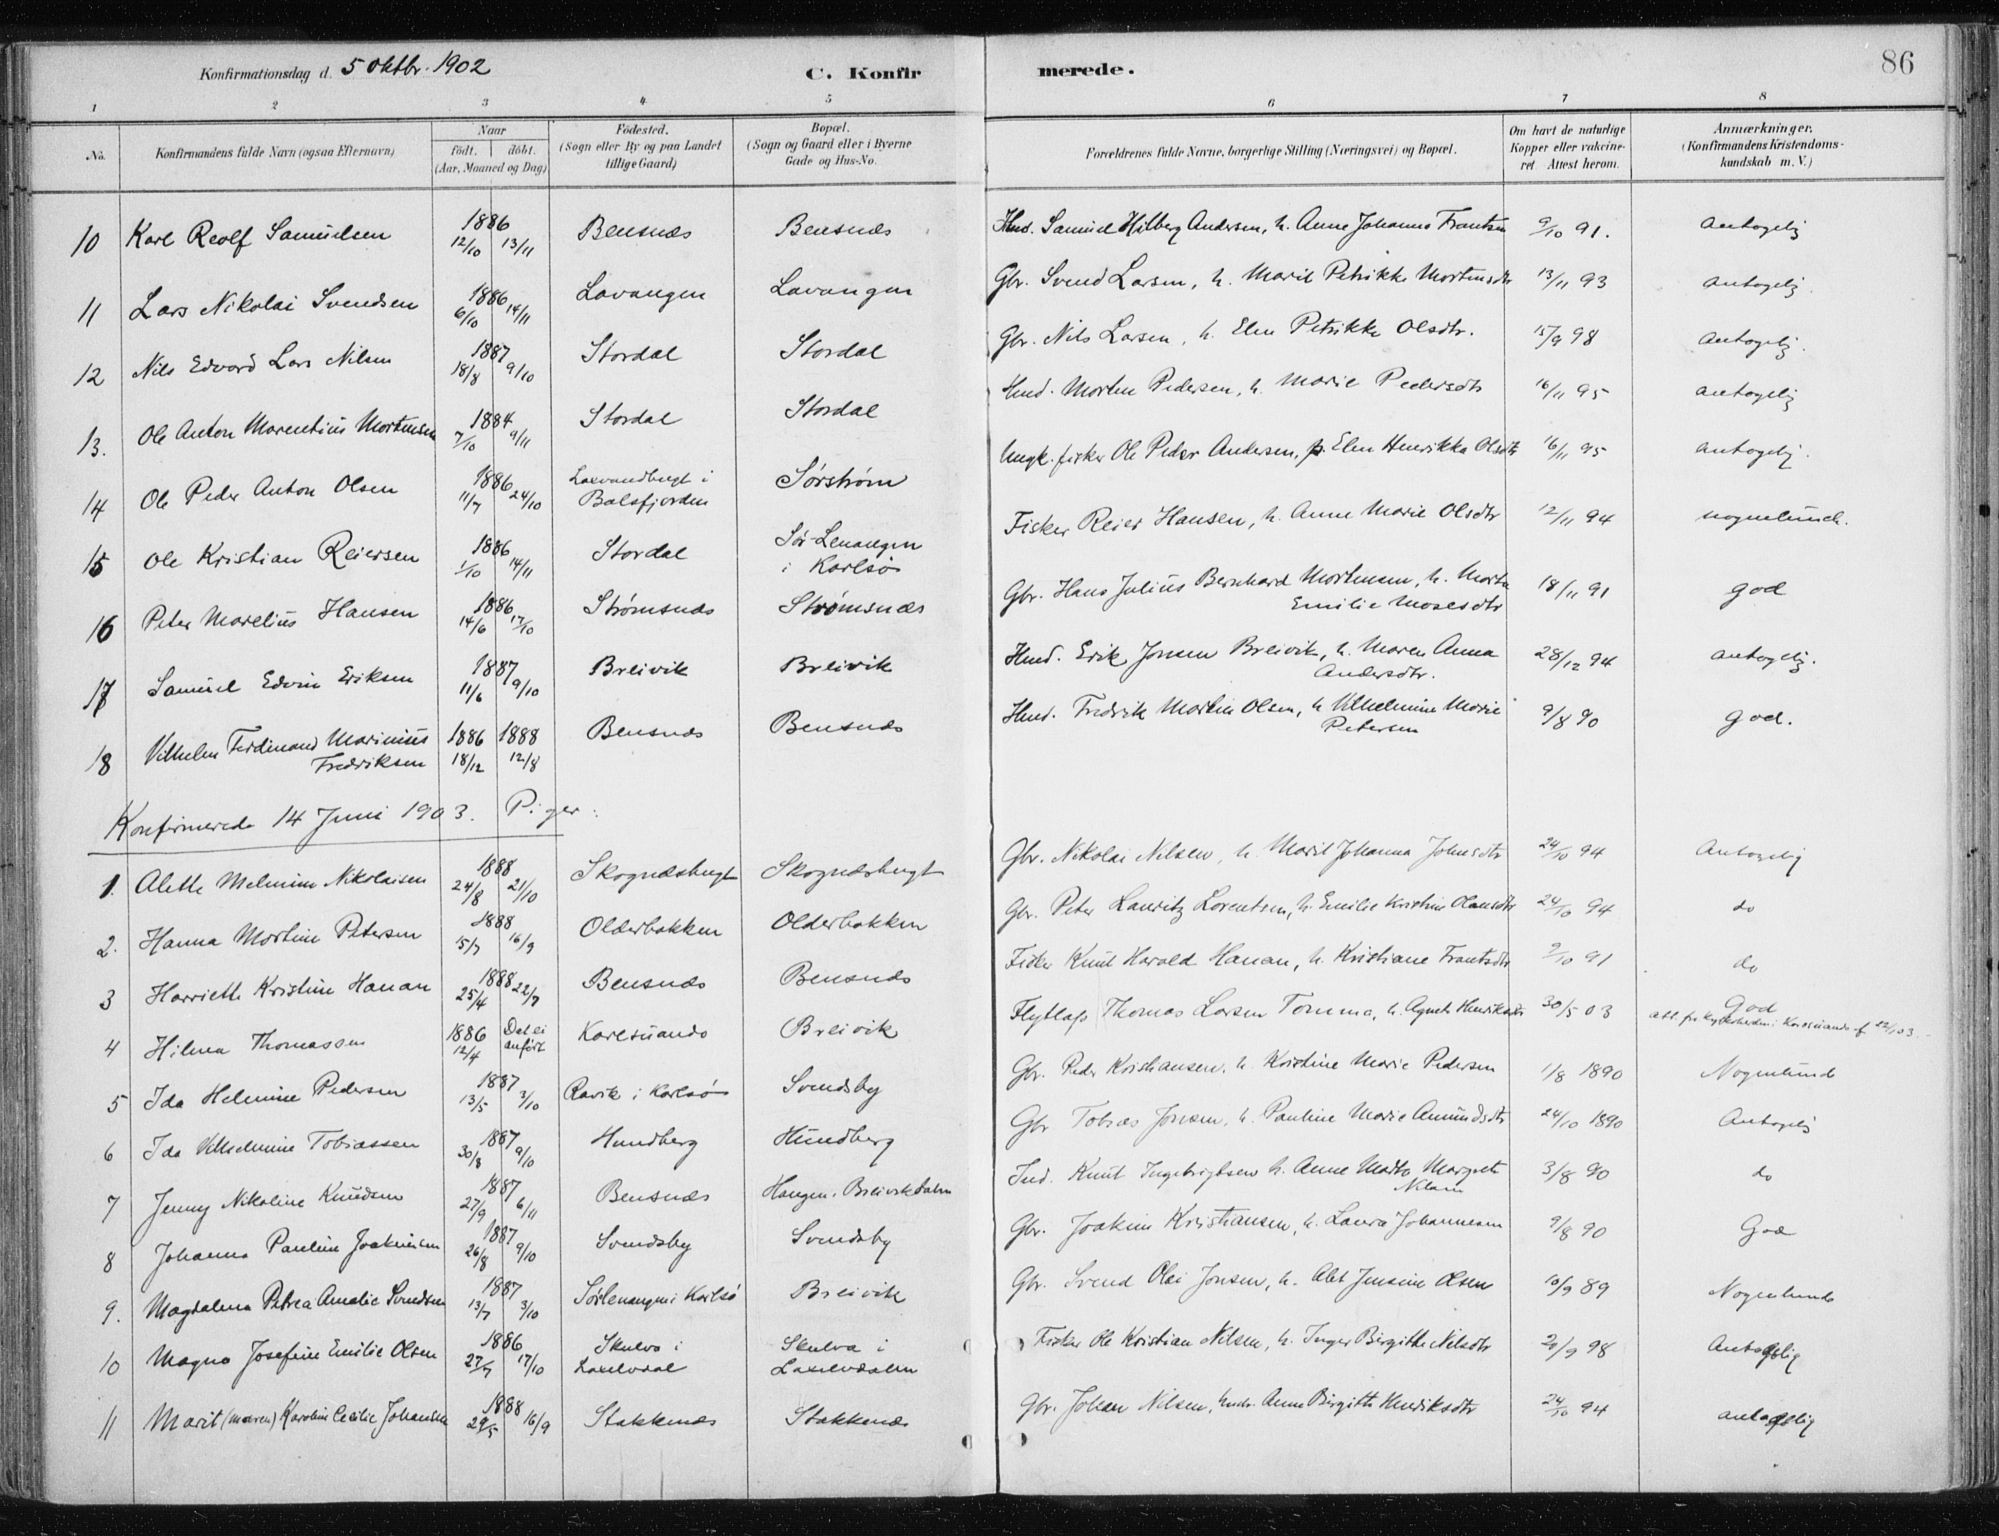 86
Konfirmationsdag d. 5 Oktbr. 1902 C. Konfir merede.
1 2 3 4 5 6 7 8
No. Konfirmandens fulde Navn (ogsaa Efternavn) Naar født. døbt. (Aar, Maaned og Dag) Fødested. (Sogn eller By og paa Landet tillige Gaard) Bopæl. (Sogn og Gaard eller i Byerne Gade og Hus-No. Forældrenes fulde Navne, borgerlige Stilling (Næringsvei) og Bopæl. Om havt de naturlige Kopper eller vakcineret Attest herom. Anmærkninger. (Konfirmandens Kristendomskundskab m. V.)
10 Karl Reolf Samuelsen 1886 12/10 13/11 Bensnæs Bensnæs Hmd. Samuel Hilberg Andersen, h. Anne Johanna Frantsen 9/10 91. antagelig
11 Lars Nikolai Svendsen 1886 6/10 14/11 Lavangen Lavangen Gbr. Svend Larsen, h. Marit Petrikke Mortensdtr 13/11 93 antagelig.
12 Nils Edvard Lars Nilsen 1887 18/8 9/10 Stordal Stordal Gbr. Nils Larsen, h. Elen Petrikke Olsdtr. 15/9 98 antagelig.
13. Ole Anton Marentius Mortensen 1884 7/10 9/11 Stordal Stordal Hmd. Morten Pedersen, h. Marie Pedersdtr 16/11 95 antagelig
14 Ole Peder Anton Olsen 1886 11/7 24/10 Laxvandbugt i Balsfjorden Sørstrøm Ungk. fisker Ole Peder Andersen, p. Elen Henrikka Olsdtr 16/11 95 antagelig.
15 Ole Kristian Reiersen 1886 1/10 14/11 Stordal Sør-Lenangen i Karlsø Fisker Reier Hansen, h. Anne Marie Olsdtr 12/11 94 nogenlunde.
16 Peter Marelius Hansen 1886 14/6 17/10 Strømsnæs Strømsnæs Gbr. Hans Julius Bernhard Mortensen, h. Marta Emilie Mosesdtr 18/11 91 god
17 Samuel Edvin Eriksen 1887 11/6 9/10 Breivik Breivik Hmd. Erik Jonsen Breivik, h. Maren Anna Andersdtr. 28/12 94 antagelig.
18 Vilhelm Ferdinand Marinius Fredriksen 1886 18/12 1888 12/8 Bensnæs Bensnæs Hmd. Fredrik Martin Olsen, h Vilhelmine Marie Petersen 9/8 90 god.
Konfirmerede 14 Juni 1903. Piger:
1. Alette Melmine Nikolaisen 1888 24/8 21/10 Skognæsbugt Skognæsbugt Gbr. Nikolai Nilsen, h. Marit Johanna Johnsdtr 24/10 94 Antagelig
2. Hanna Martine Petersen 1888 15/7 16/9 Olderbakken Olderbakken Gbr. Peter Lauritz Lorentsen, h. Emilie Kristine Olausdtr 24/10 94 do
3 Harriette Kristine Hanan 1888 25/4 22/7 Bensnæs Bensnæs Fisker Knut Harald Hanan, h. Kristiane Frantsdtr 9/10 91 do
4 Hilma Thomassen 1886 12/4 Det ei anført Karesuando Breivik Flytlap Thomas Larsen Tomma, h. Agnete Henriksdtr 30/5 03 God
5 Ida Helmine Pedersen 1887 13/5 3/10 Ravik i Karlsø Svendsby Gbr. Peder Kristiansen, h. Kristine Marie Pedersen 1/8 1890 Nogenlunde
6 Ida Vilhelmine Tobiassen 1887 30/8 9/10 Hundberg Hundberg Gbr Tobias Jonsen, h. Pauline Marie Amundsdtr 24/10 1890 Antagelig
7 Jenny Nikoline Knudsen 1887 27/9 6/11 Bensnæs Haugen, Breivikdalen Ind. Knut Ingebrigtsen h. Anne Marta Margrete Nilsen 3/8 90 do
8 Johanna Pauline Joakimsen 1887 26/8 9/10 Svendsby Svendsby Gbr. Joakim Kristiansen, h. Laura Johannesen 9/8 90 God
9. Magdalena Petrea Amalie Svendsen 1887 13/7 3/10 Sørlenangen i Karlsø Breivik Gbr. Svend Olai Jonsen, h. Alet Jensine Olsen 10/9 89 Nogenlunde
10 Magna Josefine Emilie Olsen 1886 27/7 17/10 Skulva i Laxelvdal Skulva i Laxelvdalen Fisker Ole Kristian Nilsen, h. Inger Birgitte Nilsdtr 21/9 98 Antagelig
11 Marit (Maren) Karoline Cecilie Johansen 1888 29/5 16/9 Stakkenæs Stakkenæs Gbr. Johan Nilsen, Hustr. Anne Birgitte Henriksdtr 24/10 94 antagelig